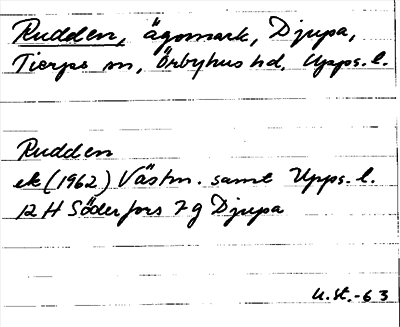 Rudden, ägomark, Djupa,
Tierps sn, Örbyhus hd, Upps. l.
Rudden
ek (1962) Västm. samt Upps. l.
12 H Söderfors 7 g Djupa
U.St.-63